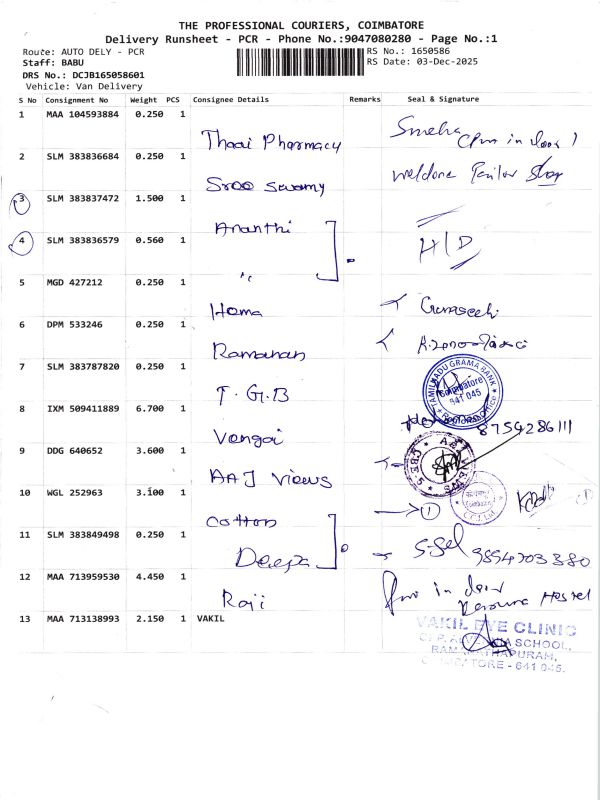 THE PROFESSIONAL COURIERS, COIMBATORE
Delivery Runsheet - PCR - Phone No.:9047080280 - Page No.:1
Route: AUTO DELY - PCR
RS No.: 1650586
Staff: BABU
RS Date: 03-Dec-2025
DRS No.: DCJB165058601
Vehicle: Van Delivery
S No Consignment No Weight PCS Consignee Details Remarks Seal & Signature
1 MAA 104593884 0.250 1
Thaai Pharmacy Sneha
2 SLM 383836684 0.250 1
Sree Swamy weldone Tailor Shop
3 SLM 383837472 1.500 1
Ananthi
4 SLM 383836579 0.560 1
" H/D
5 MGD 427212 0.250 1
Hema
6 DPM 533246 0.250 1
Ramanan
7 SLM 383787820 0.250 1
T.G.B
TAMILNADU GRAMA BANK
Coimbatore
641 045
8 IXM 509411889 6.700 1
Vengai 8754286111
9 DDG 640652 3.600 1
AAJ Views
10 WGL 252963 3.100 1
Cotton 1
11 SLM 383849498 0.250 1
Deepa 9894703380
12 MAA 713959530 4.450 1
Raji Hostel
13 MAA 713138993 2.150 1 VAKIL
VAKIL EYE CLINIC
SCHOOL,
RAMANATHAPURAM,
COIMBATORE - 641 045.